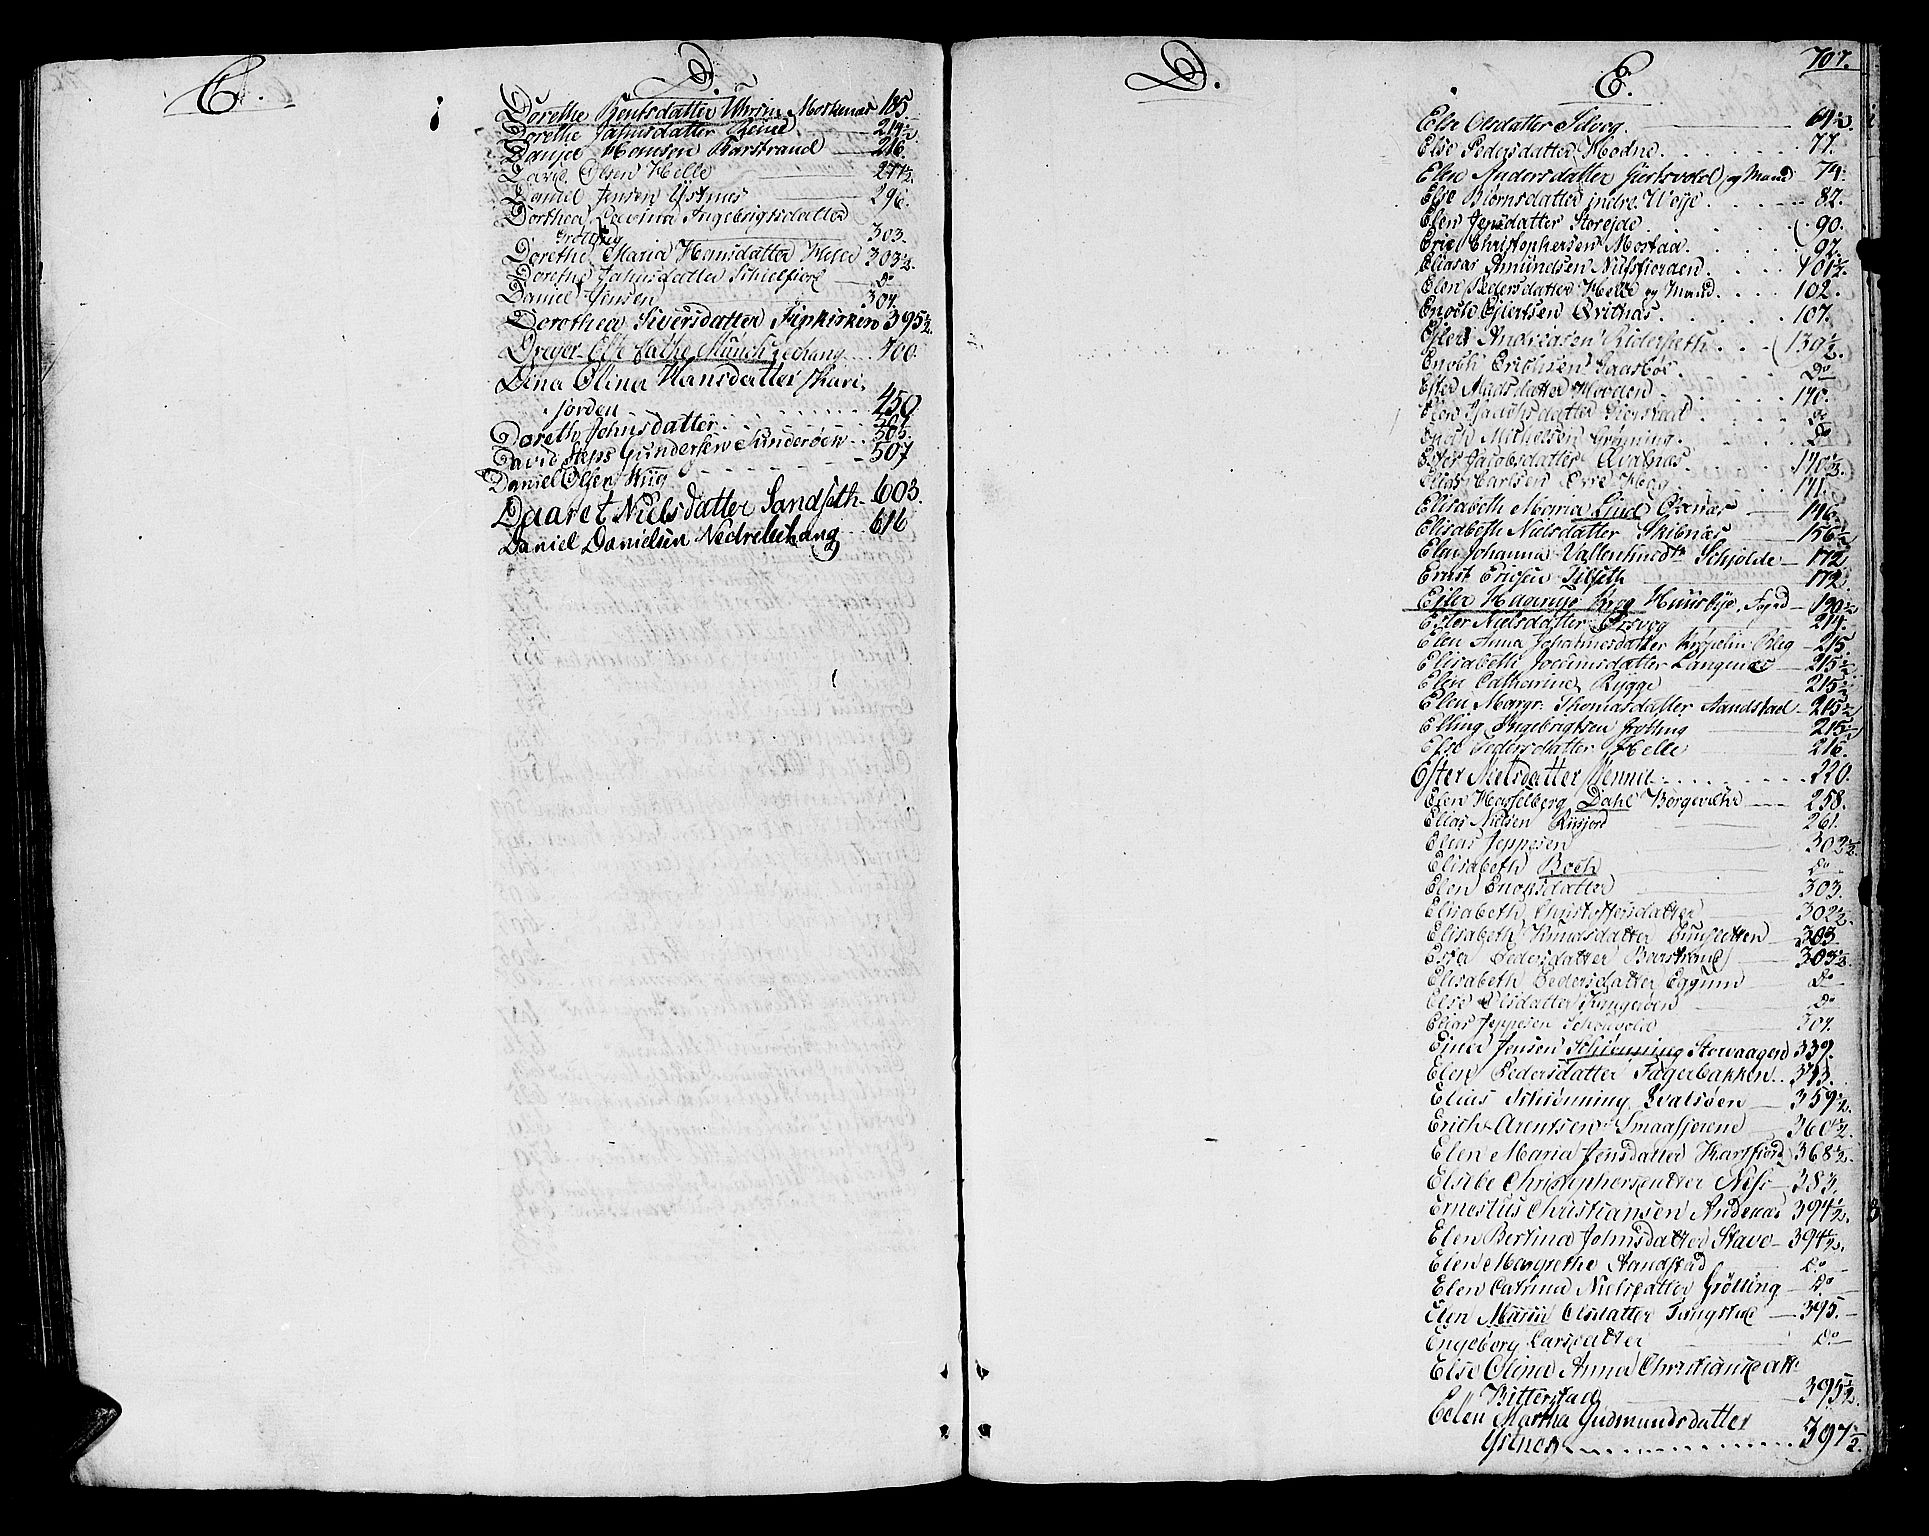 C.
D.
Dorethe Bentsdatter Uhrin Moskenæs 185.
Dorethe Johnsdatter Reine 214½
Daniel Hansen Barstrand 216.
Olsen Helle 277½
Daniel Jensen Ystnes 296.
Dorthea Lovina Ingebrigtsdatter
Grötting 303.
Dorethe Maria Hansdatter Helle 303½.
Dorethe Johnsdatter Schielfiord Do
Daniel Jensen 304.
Dorothea Siversdatter 395½
Dreyer Else Cathr. Munch Lechang 400.
Dina Olina Hansdatter Kari
jorden 450
Doreth Johnsdatter 504.
David Jeps Gundersen Sunderöen 505.
Daniel Olsen Wiig 507
Daaret Nielsdatter Sandseth 603.
Daniel Danielsen Nedrelechang 616
D.
E. 707.
Else Olsdatter Silvog. 64½.
Else Pedersdatter Modne. 77.
Elen Andersdatter Giertsvold og Mand 74.
Else Biörnsdatter indre Woje. 82.
Elen Jensdatter Storeide 90.
Eric Christophersen Mortad. 97.
Eliasas Amundsen Nusfiorden. 101½.
Elen Pedersdatter Helle og Mand. 102.
Enoch Ejlertsen Qvitnæs. 107.
Ester Andreasen Riderseth. 139½.
Enoch Erichsen Do
Ester Madsdatter 140.
Elen Do
Enoch Michelsen Grönning. Do
Ester Jacobsdatter Qvalnæs. 140½.
Elias Carlsen Evre Haag 141.
Elisabeth Maria Lind 146.
Elisabeth Nielsdatter Skibnæs 156½
Elen Johanna Vallenhundt Schjolde 172
Ernst Ericsen Tilseth 172.
Ejler Hagerup Krog Huusbye, Fogd 190½
Ester Nielsdatter Orsvog 214.
Elen Anna Johannesdatter 215.
Elisabeth Jocumsdatter Langenæs 215½
Elen Catharine Rygge 215½
Elen Margr. Thomasdatter Sandstad 215½
Elling Ingebrigtsen Grötting 215½
Else Pedersdatter Helle 216.
Ester Nielsdatter 220.
Elen Hasselberg Dahl Borgevæhr 258.
Elias Nielsen Riisjord 261.
Elias Jeppesen 302½
Elisabeth Boch Do
Elen Enoksdatter 303.
Elisabeth Christoffersdatter 302½.
Elisabeth Knudsdatter 303
Ester Pedersdatter Barstrand 303½.
Elisabeth Pedersdatter Eggum Do
Else Olsdatter Do
Elias Jeppesen 304.
Einer Jensen Schiönning Storvaagen 339.
Elen Pedersdatter Fagerbakken 343.
Elias Schiönning Svalsöen 359½.
Erich Arentsen Smaasjorene 360½.
Elen Maria Jensdatter Karlfiord 368½.
Elsebe Christophersdatter Nes 383.
Ernestus Christiansen Andenæs 394½.
Elen Bertina Johnsdatter Stave 394½.
Elen Margrethe Sandstad Do
Elen Catrina Nielsdatter Grötting Do
Elen Maria Olsdatter 395.
Engeborg Larsdatter Do
Else Olina Anna Christiansdatt:
Bitterstad 395½.
Eelen Martha Gudmundsdatter
Ystnes 397½